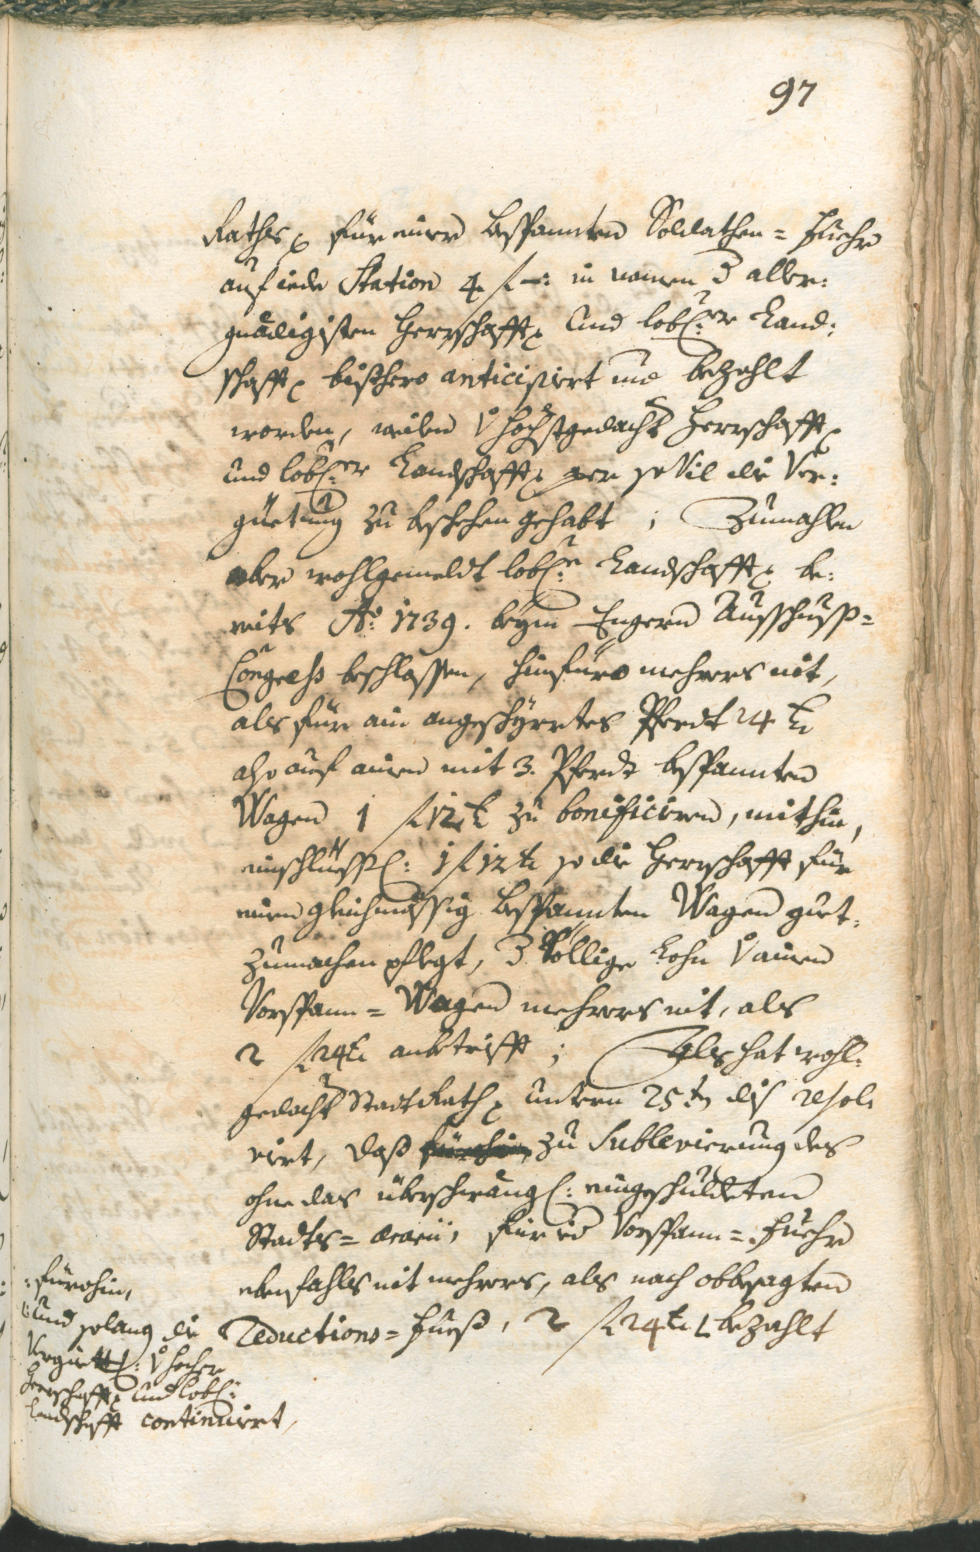 97
Raths für einen bespannten Soldathen=Fuehr
auf iede Station 4 f —: in namen d aller:
gnädigisten Herrschafft und lobl: er Land:
schafft bißhero anticipiert und bezahlt
worden, weilen v höchstgedacht Herrschafft
und lobl: er Landschafft per so vil die Ver:
güetung zu beschehen gehabt; Zumahlen
aber wohlgemeldt lobl: e Landschafft be:
reits Aō: 1739. beym Engern Ausschuss=
Congress beschlossen, hinfüro mehrers nit,
als für ain angeschyrrtes Pferdt 24 kr
also auf ainen mit 3. Pferdt bespannten
Wagen 1 f 12 kr zu bonificieren, mithin,
einschlüssl: 1 f 12 kr so die Herrschafft für
einen gleichmässig bespannten Wagen guet.
zumachen pflegt, d völlige Lohn v ainen
Vorspann=Wagen mehrers nit, als
2 f 24 kr anbetrifft; Als hat wohl:
gedacht Stadt Rath untern 25ten diß resol
virt, daß zu Sublevierung des
ohne das überschwängl: eingeschuldeten
Stadts=Aerarii, für ein Vorspann=Fuehr
ebenfahls nit mehrers, als nach obbesagten
Reductions=Fueß, 2 f 24 kr bezahlt
:fürohin,
und solang die
Vergiett: v hocher
Herrschafft und lobl:
Landschafft continuiert,